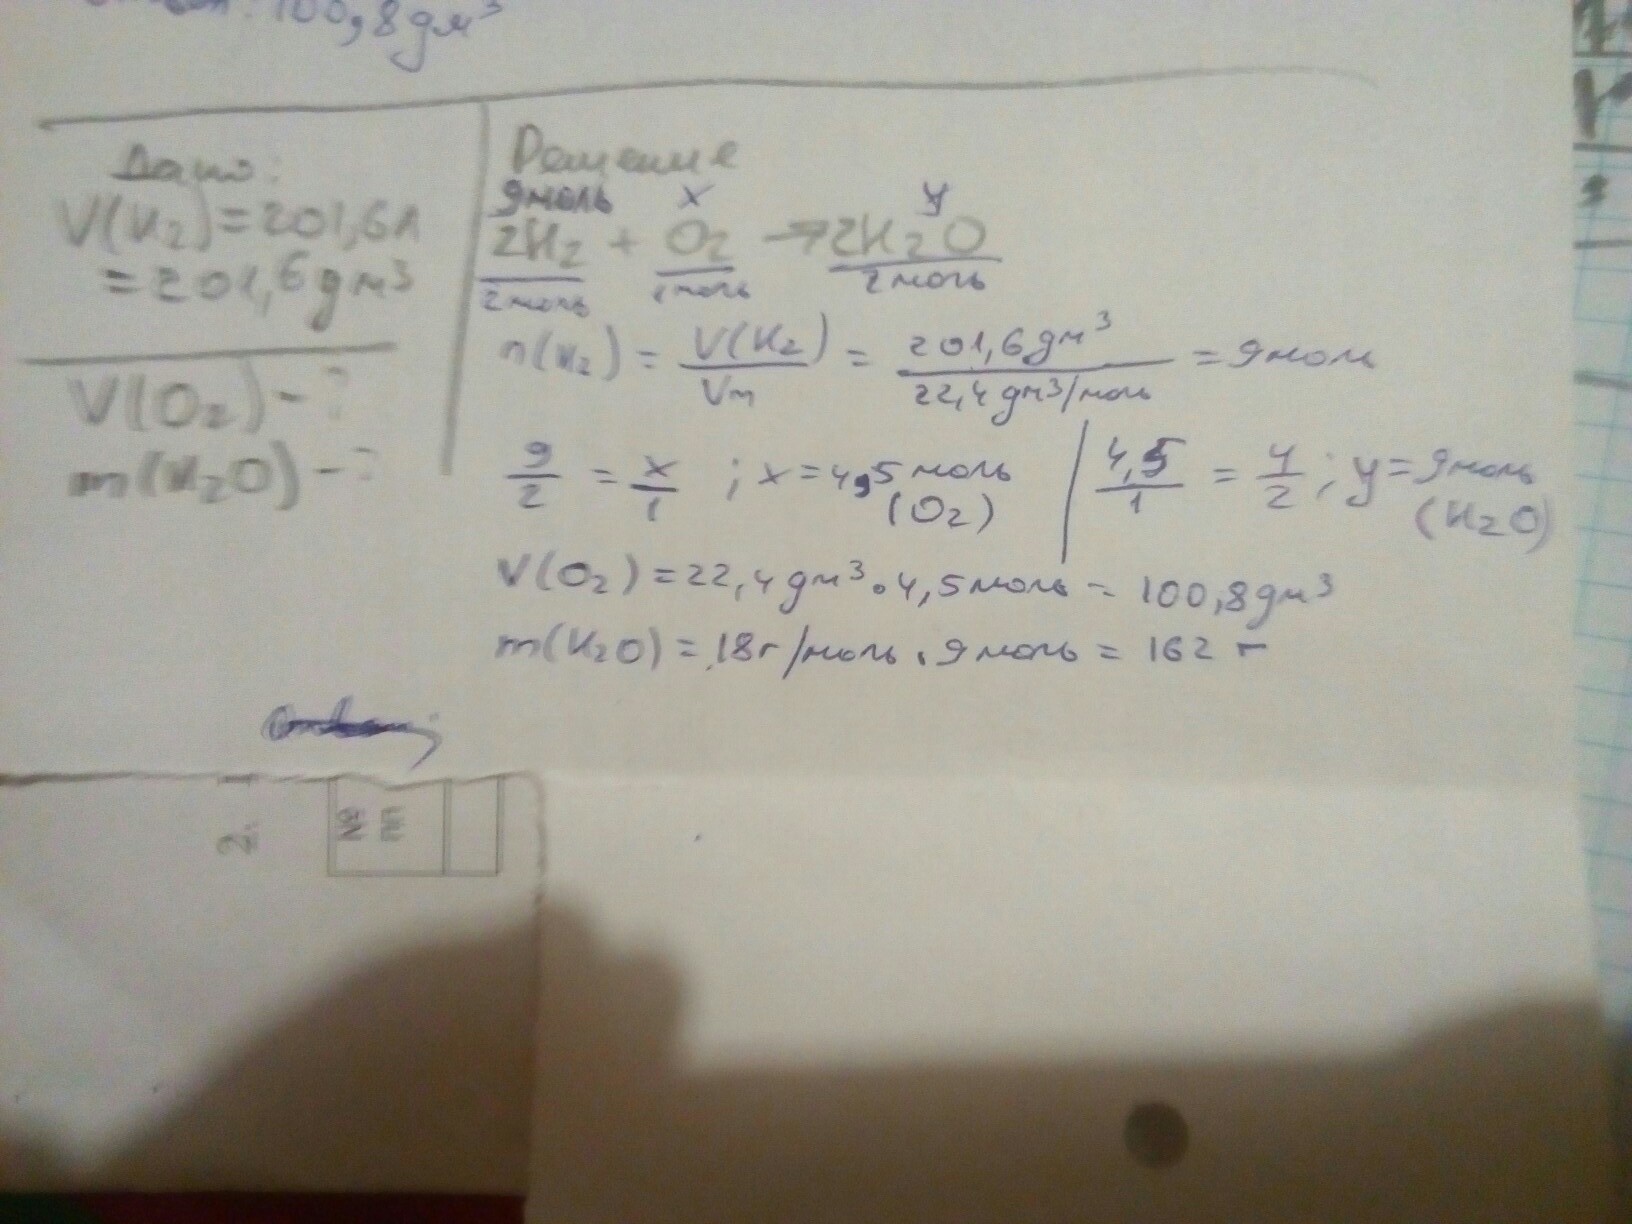 100,8 дм³
Дано:
V(H₂)=201,6л
=201,6 дм³
V(O₂)-?
m(H₂O)-?
Решение
9моль x y
2H₂ + O₂ → 2H₂O
2моль 1моль 2моль
n(H₂) = V(H₂)/Vm = 201,6 дм³/22,4 дм³/моль = 9моль
9/2 = x/1 ; x=4,5 моль (O₂) | 4,5/1 = y/2 ; y=9моль (H₂O)
V(O₂)=22,4 дм³·4,5моль = 100,8 дм³
m(H₂O)=18г/моль·9моль = 162 г
2.
№
пп